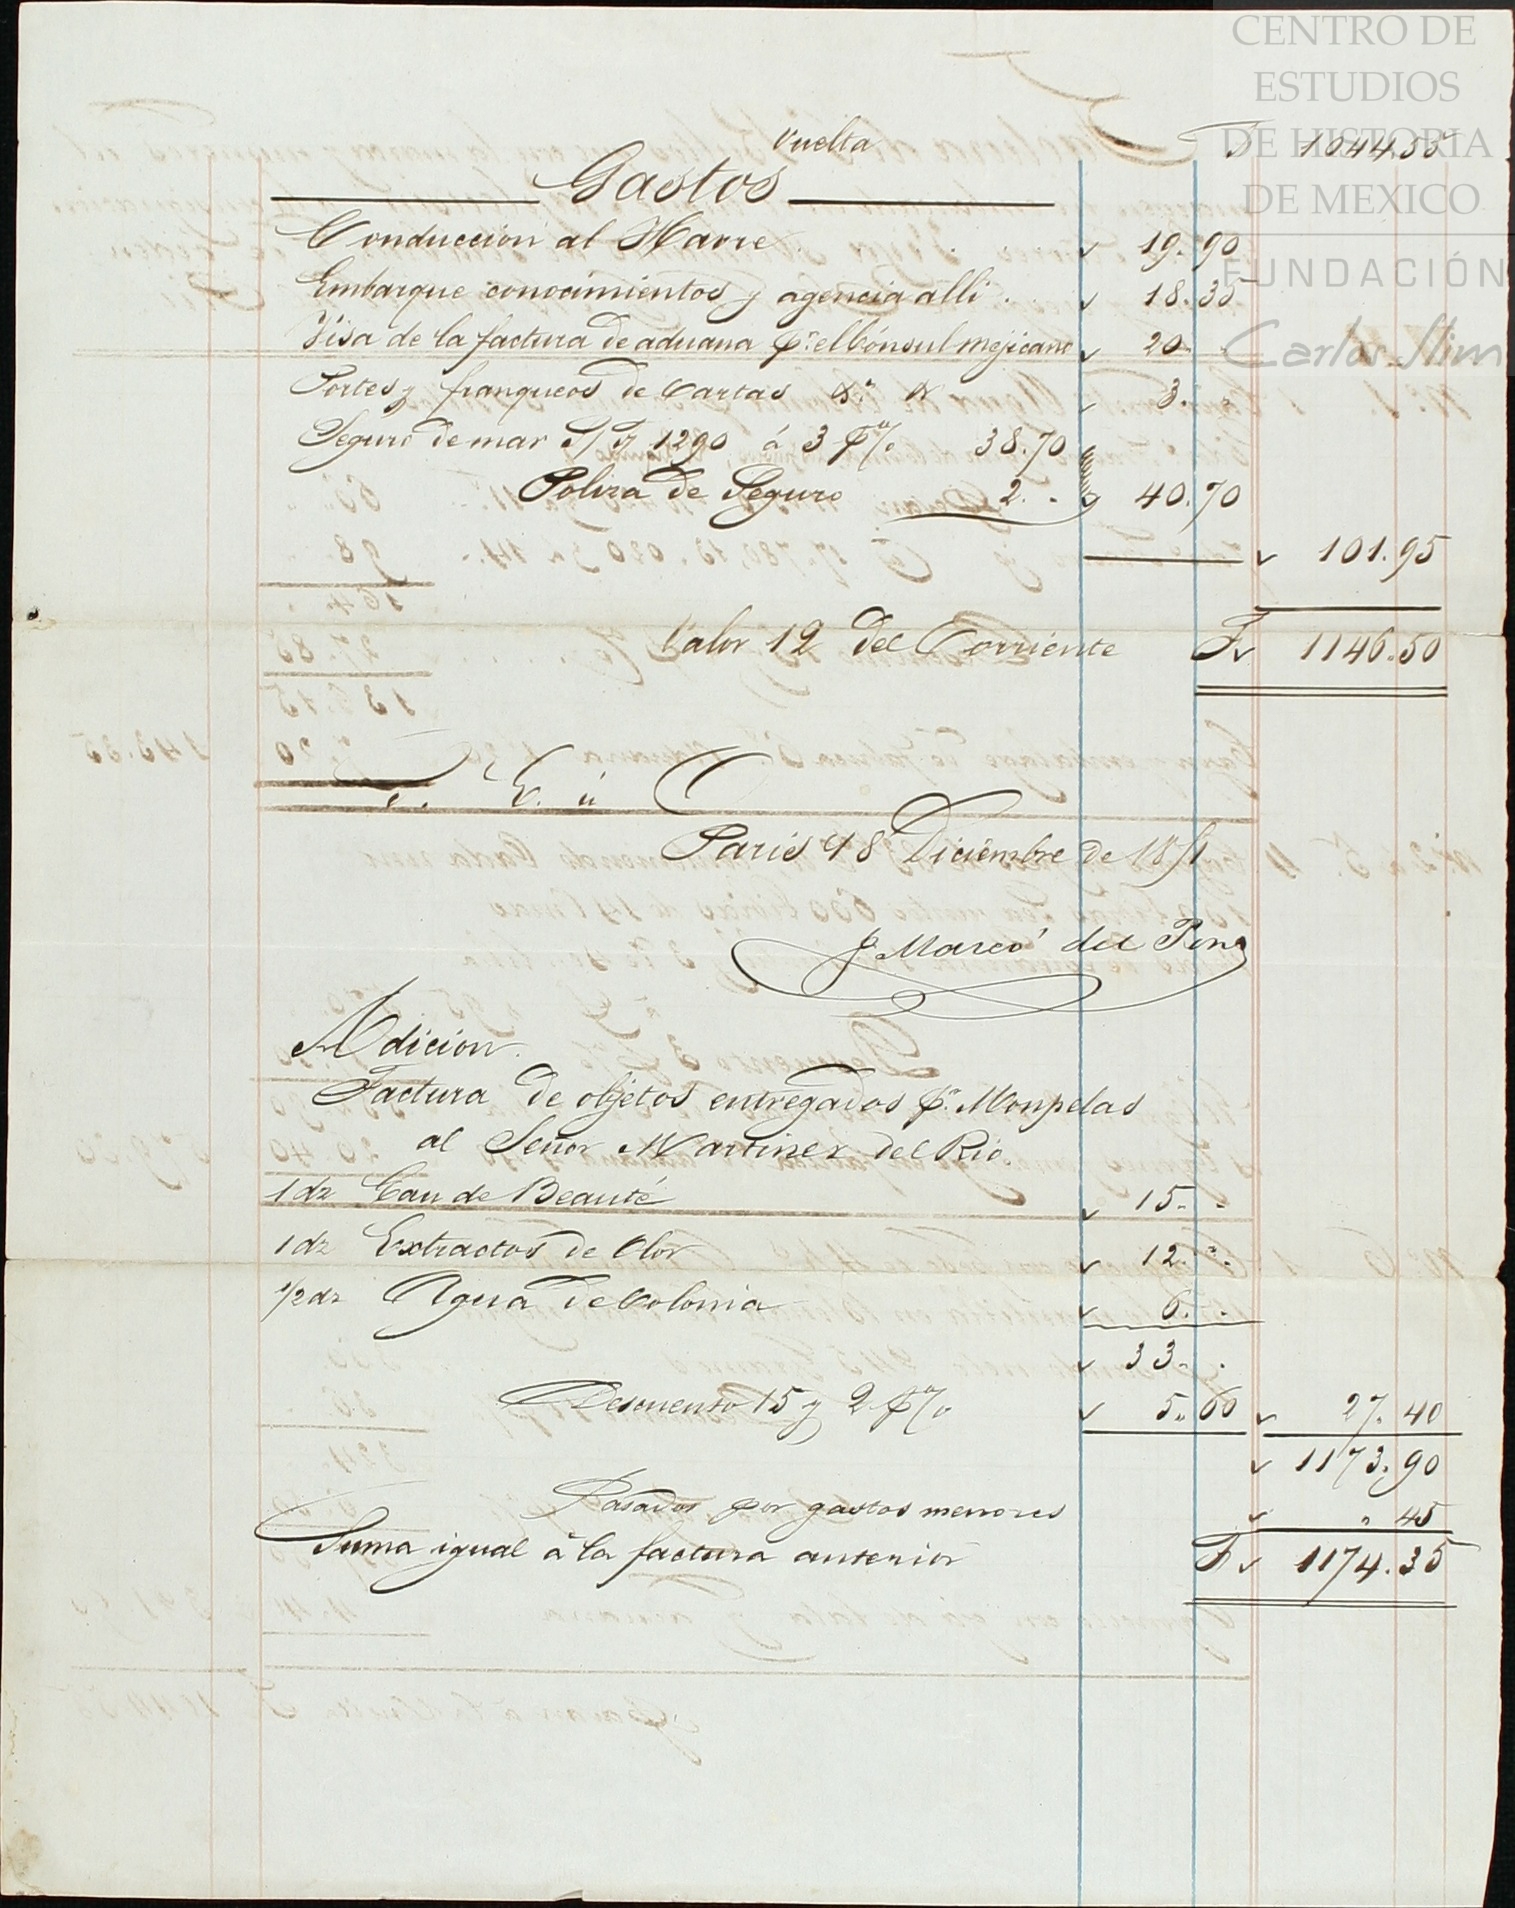 CENTRO DE
ESTUDIOS
DE HISTORIA
DE MEXICO
FUNDACIÓN
Carlos Slim
Vuelta F 1044.55
Gastos
Conduccion al Havre 19.90
Embarque conocimientos y agencia alli 18.35
Visa de la factura de aduana pr. el Cónsul mejicano 20 "
Portes y franqueos de Cartas &a & 3. "
Seguro de mar S/F 1290 á 3 p% 38.70
Poliza de Seguro 2. " 40.70
101.95
Valor 12 del Corriente F 1146.50
S. E. ú O
Paris 18 Diciembre de 1851
J. Marcó del Pont
Adicion.
Factura de objetos entregados pr. Monpelas
al Señor Martinez del Rio.
1 dz Eau de Beauté 15. "
1 dz Extractos de Olor 12. "
1/2 dz Agua de Colonia 6. "
33. "
Descuento 15 y 2 p% 5.60 27.40
1173.90
Pasados por gastos menores " 45
Suma igual á la factura anterior F 1174.35